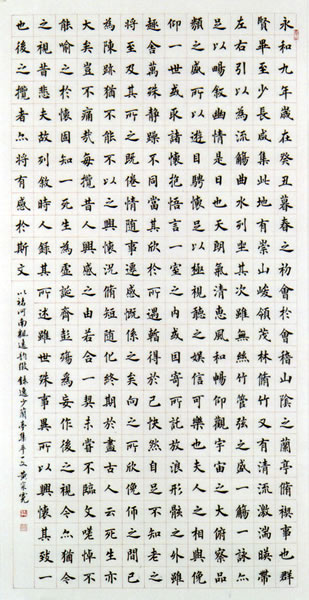 永和九年歲在癸丑暮春之初會於會稽山陰之蘭亭脩禊事也群
賢畢至少長咸集此地有崇山峻領茂林脩竹又有清流激湍暎帶
左右引以為流觴曲水列坐其次雖無絲竹管弦之盛一觴一詠亦
足以暢敘幽情是日也天朗氣清惠風和暢仰觀宇宙之大俯察品
類之盛所以遊目騁懷足以極視聽之娛信可樂也夫人之相與俛
仰一世或取諸懷抱悟言一室之內或因寄所託放浪形骸之外雖
趣舍萬殊靜躁不同當其欣於所遇暫得於己快然自足不知老之
將至及其所之既倦情隨事遷感慨係之矣向之所欣俛仰之間已
為陳跡猶不能不以之興懷況脩短隨化終期於盡古人云死生亦
大矣豈不痛哉每攬昔人興感之由若合一契未嘗不臨文嗟悼不
能喻之於懷固知一死生為虛誕齊彭殤為妄作後之視今亦猶今
之視昔悲夫故列敘時人錄其所述雖世殊事異所以興懷其致一
也後之攬者亦將有感於斯文
以褚河南 逸少蘭亭集序一文